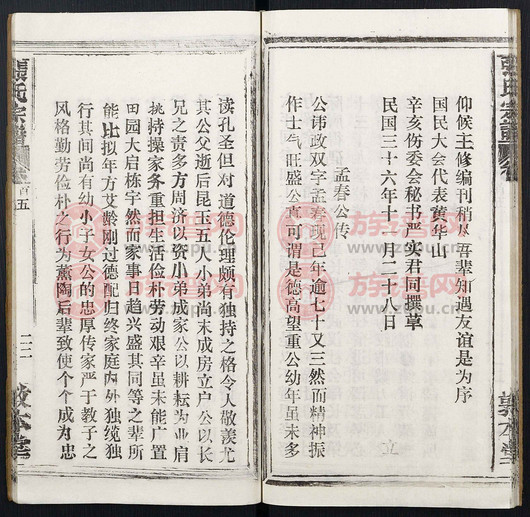 張氏宗譜
仰候主修编刊稍尽吾辈知遇友谊是为序
国民大会代表黄华山
辛亥伤委会秘书严实君同撰草
民国三十六年十一月二十八日
立
孟春公传
公讳政双字孟春现己年逾七十又三然而精神振
作士气旺盛公真可谓是德高望重公幼年虽未多
敦本堂
读孔圣但对道德伦理颇有独持之格令人敬羡尤
其公父逝后昆玉五人小弟尚未成房立户公以长
兄之责多方周济以资小弟成家公以耕耘为业肩
挑持操家务重担生活俭朴劳动艰辛虽未能广置
田园大启栋宇然而家事日趋兴盛其同等之辈所
能比拟年方艾龄刚过德配归终家庭内外独缆独
行其间尚有幼小子女公的忠厚传家严于教子之
风格勤劳俭朴之行为薰陶后辈致使个个成为忠
張氏宗譜
首五
二二
敦本堂
族谱网
www.zupu.cn